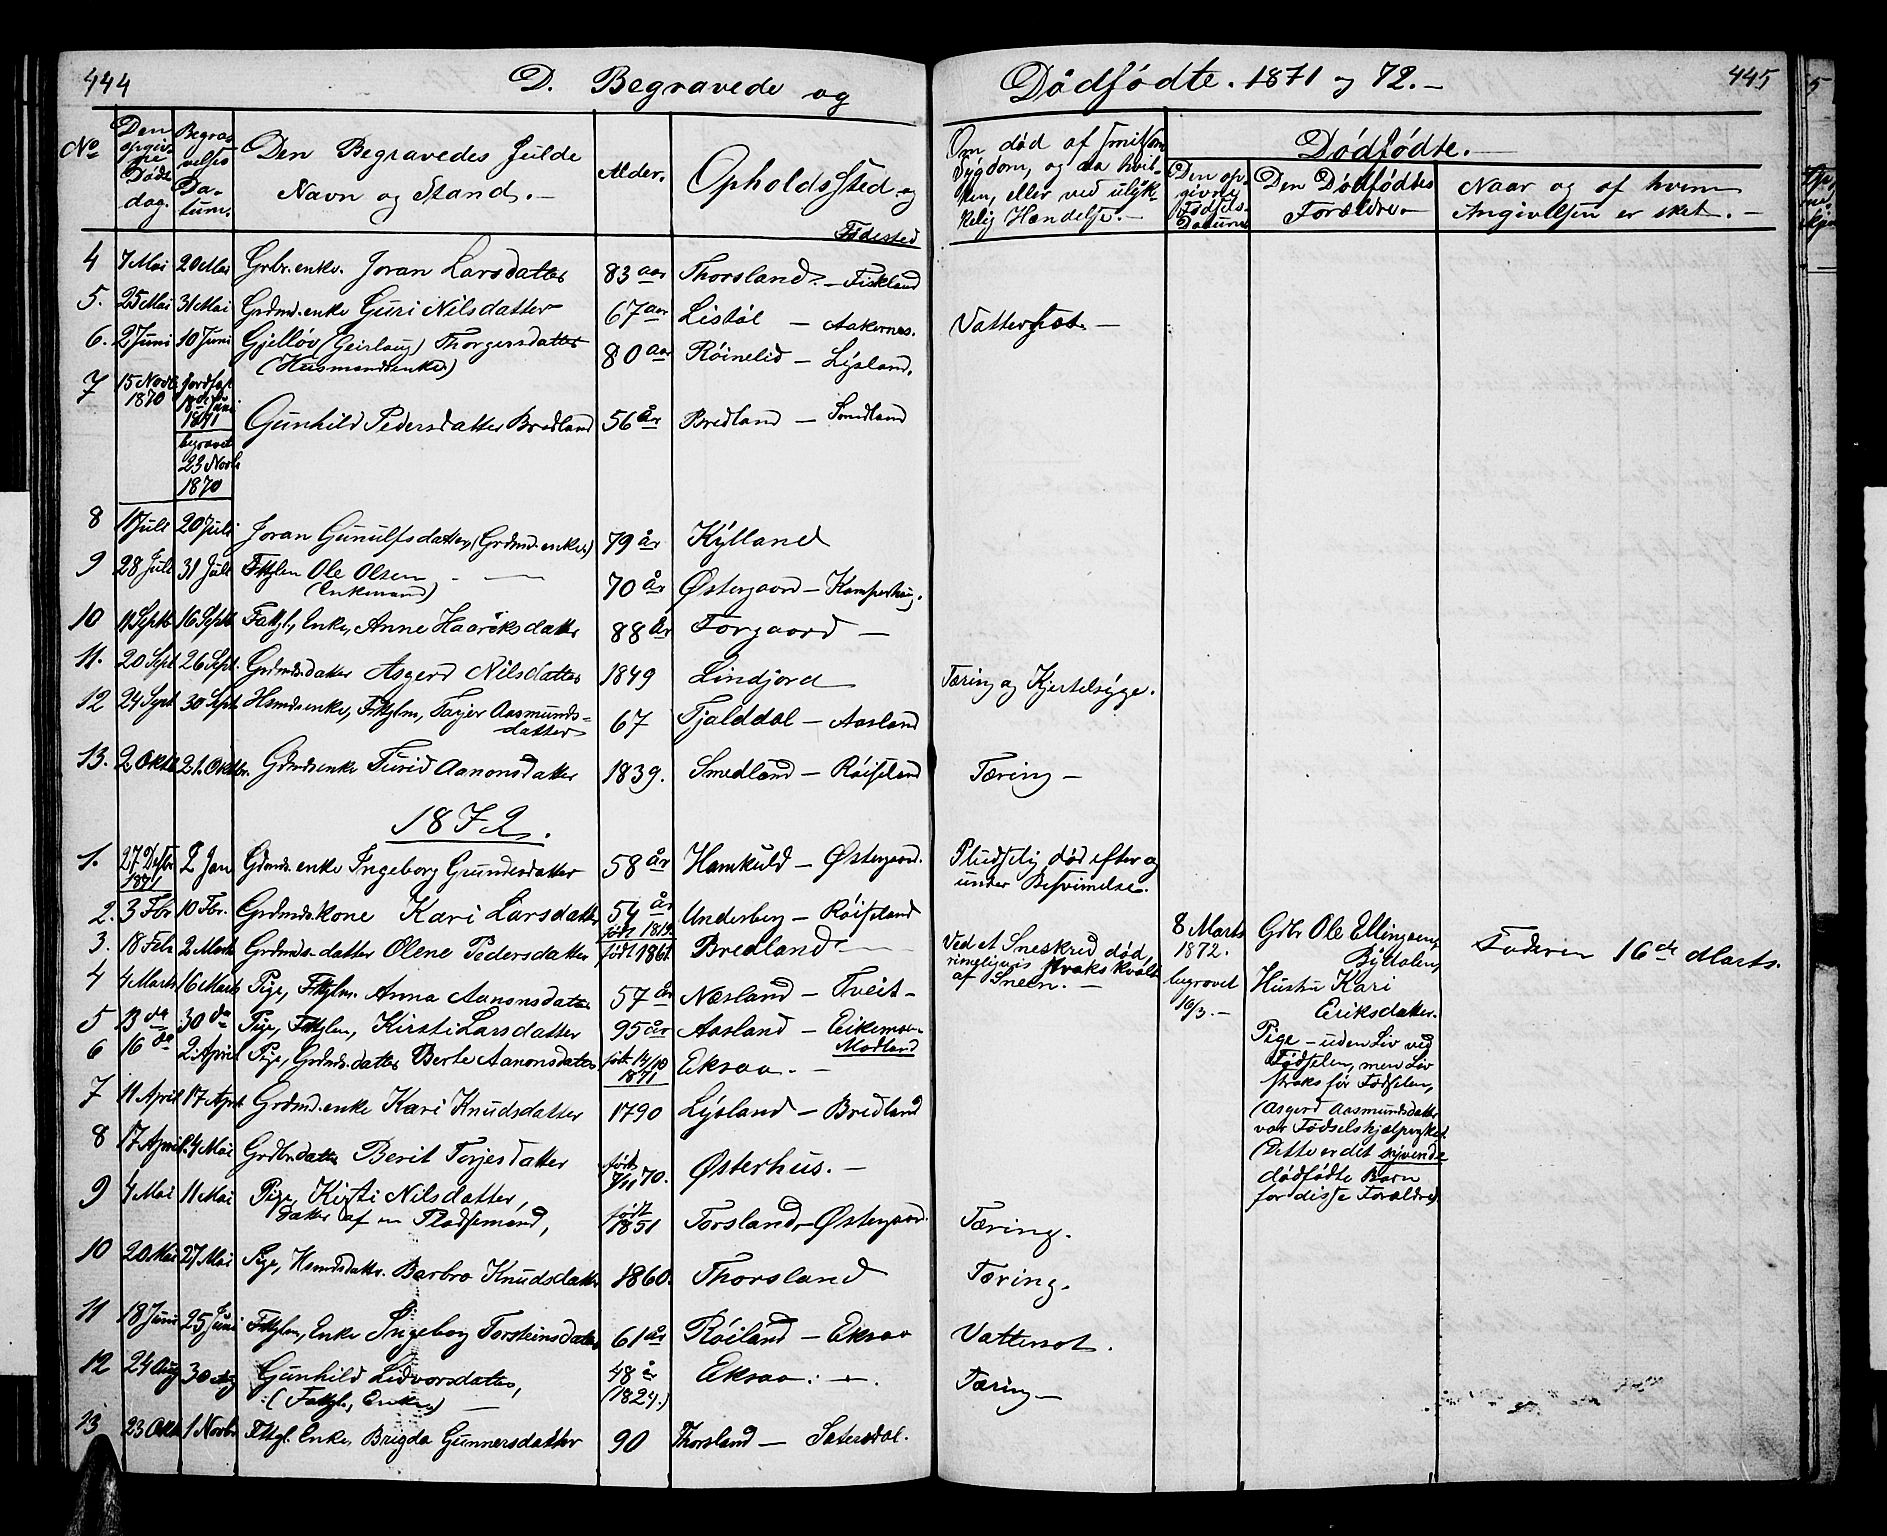 444
D. Begravede og
Dödfödte. 1871 og 72. –
445
No
Den opgivne Döds dag.
Begravelses Datum.
Den Begravedes fulde Navn og Stand. –
Alder.
Opholdssted og Födested
Om död af smitsom Sygdom, og da hvilken, eller ved ulykkelig Hændelse. –
Dödfödte. –
Den opgivne Födsels Datum
Den Dödfödtes Forældre. –
Naar og af hvem Angivelsen er sket. –
4 7 Mai 20 Mai Grbr. enke. Joran Larsdatter 83 aar Thorsland. – Fiskland
5. 25 Mai 31 Mai Grdmd. enke Guri Nilsdatter 67 aar Listöl – Aakernes. Vattersot. –
6. 2 Juni 10 Juni Gjellöv (Geirlaug) Thorgersdatter 80 aar Röinelid – Lysland.
(Husmandsenke)
7 15 Novb 1870 Jordfæst 18de Juni 1871 begravet 23 Novb 1870 Gunhild Pedersdatter Bredland 56 år Bredland – Smedland
8 11 Juli 20 Juli Joran Gunulfsdatter (Grdmd. enke) 79 år Kylland
9 28 Juli 31 Juli Fttglm Ole Olsen 70 år Östergaard – Kamperhaug.
(Enkemand)
10 11 Septb 16 Septb Fattgl, Enke, Anne Haaröksdattr 88 år Torgaard –
11. 20 Sept 26 Sept. Grdmdsdatter Asgerd Nilsdatter 1849 Lindjord Tæring og Kjertelsyge.
12 24 Sept 30 Sept Hsmdsenke, Fttglm, Tarjer Aasmunds-
datter 67 Tjalddal – Aasland
13. 2 Oktb 21. Oktbr. Grdmdsenke Turid Aanonsdatter 1839. Smedland – Röiseland Tæring –
1872.
1. 27 Desbr 1871 2 Jan Grdmds. enke Ingeborg Gundersdatter 58 år Hamkuld – Östergaard. Pludselig död efter og
under Besvimelse.
2. 3 Fbr 10 Fbr. Grdmds. kone Kari Larsdatter 54 år
födt 1819 Underberg – Röiseland
3. 18 Febr 2 Marts Grdmds. datter Olene Pedersdatter födt 1861. Bredland – Ved et Sneskred död,
rimeligvis straks kvalt
af Sneen. –
8 Marts
1872.
begravet
16/3. –
Gdbr Ole Ellingsen,
Bydalen,
Hustru Kari
Eriksdatter.
Pige – uden Liv ved
Födselen, men Liv
straks för Födselen,
(Asgerd Aasmundsdatter
var Födselshjælperske.
(Dette er det syvende
dödfödte Barn
for disse Forældre)
Faderen 16de Marts.
4 4 Marts 16 Marts Pige, Fttglm. Anna Aanonsdatter 57 år Næsland – Tveit –
5 13 da 30 da Pige, Fttglm, Kirsti Larsdatter 95 år Aasland – Eikemo –
Modland
6 16 da 2. April Pige, Grdmds. datter Berte Aanonsdatter födt 14/10
1871 Eksaa. –
7 11 April 17 April Grdmd. enke Kari Knudsdatter 1790 Lysland – Bredland
8 17 April. 4 Mai Grdbr. datter Berit Torjesdatter födt
7/11 70. Österhus. –
9 4 Mai 11 Mai Pige, Kirsti Nilsdatter,
datter af en Pladsemand, födt
1851 Torsland, – Östergaard. Tæring.
10 20 Mai 27 Mai Pige, Hsmdsdattr. Barbro Knudsdatter 1860. Thorsland Tæring.
11 18 Juni 25 Juni Fttglm, Enke Ingeborg Torsteinsdatter 61 år Röiland – Eksaa Vattersot.
12 24 Aug 30 Aug Gunhild Lidvorsdatter,
(Fattgl, Enke) 48 år
(1824.) Eksaa. – Tæring –
13 23 Oktb 1 Novbr Fttgl. Enke, Brigda Gunnersdatter 90 Thorsland – Sætersdal.